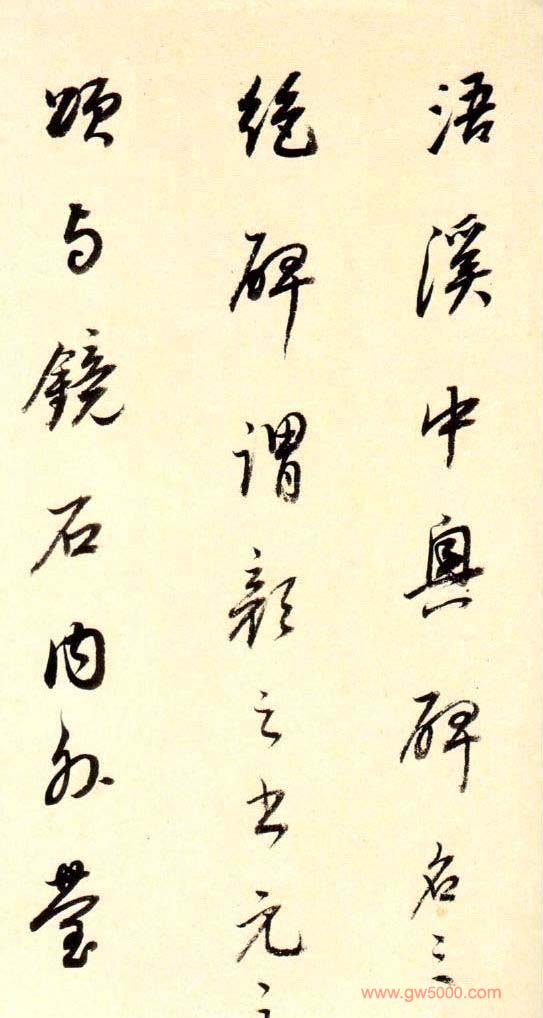 浯溪中興碑名三
絕碑謂顏之書元之
頌与鏡石内外瑩
www.gw5000.com